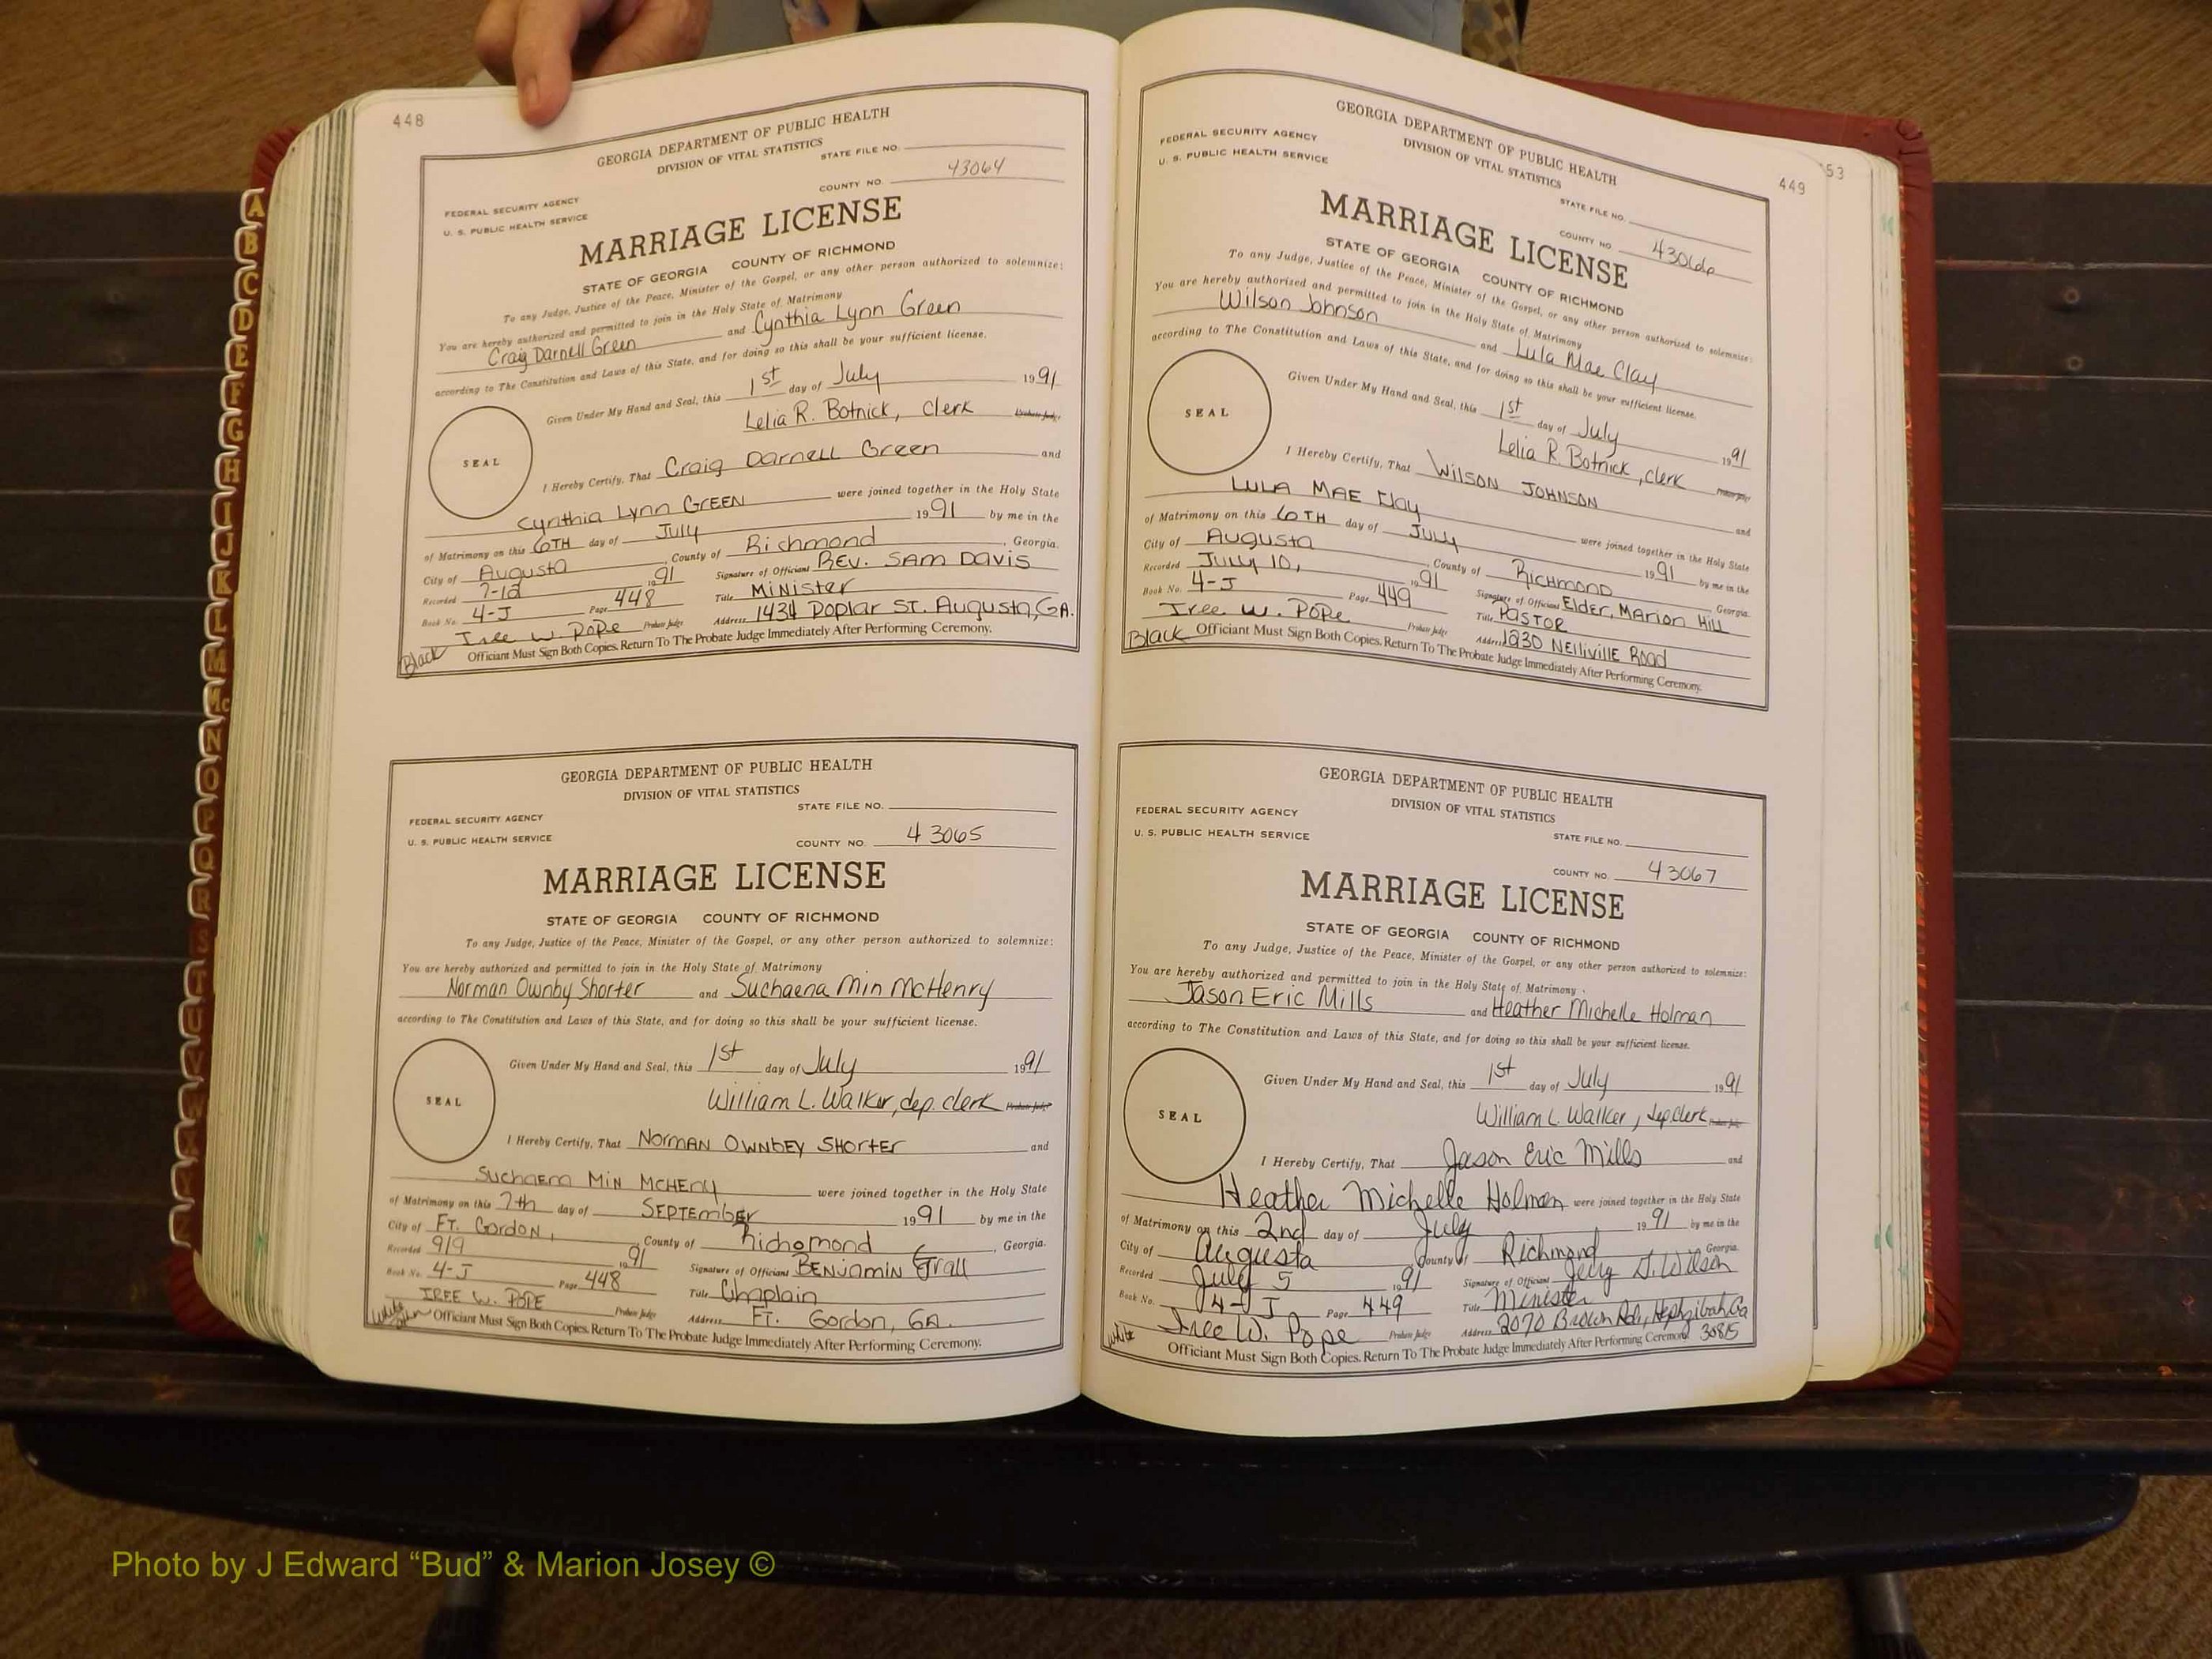 448
GEORGIA DEPARTMENT OF PUBLIC HEALTH
DIVISION OF VITAL STATISTICS
STATE FILE NO.
COUNTY NO. 43064
FEDERAL SECURITY AGENCY
U. S. PUBLIC HEALTH SERVICE
MARRIAGE LICENSE
STATE OF GEORGIA COUNTY OF RICHMOND
To any Judge, Justice of the Peace, Minister of the Gospel, or any other person authorized to solemnize:
You are hereby authorized and permitted to join in the Holy State of Matrimony
Craig Darnell Green and Cynthia Lynn Green
according to The Constitution and Laws of this State, and for doing so this shall be your sufficient license.
Given Under My Hand and Seal, this 1st day of July 1991
Lelia R. Botnick, Clerk Probate Judge
SEAL
I Hereby Certify, That Craig Darnell Green and
Cynthia Lynn GREEN were joined together in the Holy State
of Matrimony on this 6TH day of July 1991 by me in the
City of Augusta County of Richmond, Georgia.
Recorded 7-12 1991 Signature of Officiant REV. SAM DAVIS
Book No. 4-J Page 448 Title MINISTER
Iree W. POPE Probate Judge Address 1434 Poplar ST. Augusta, GA.
Black Officiant Must Sign Both Copies. Return To The Probate Judge Immediately After Performing Ceremony.
GEORGIA DEPARTMENT OF PUBLIC HEALTH
DIVISION OF VITAL STATISTICS
STATE FILE NO.
FEDERAL SECURITY AGENCY
U. S. PUBLIC HEALTH SERVICE
COUNTY NO. 43065
MARRIAGE LICENSE
STATE OF GEORGIA COUNTY OF RICHMOND
To any Judge, Justice of the Peace, Minister of the Gospel, or any other person authorized to solemnize:
You are hereby authorized and permitted to join in the Holy State of Matrimony
Norman Ownby Shorter and Suchaena Min McHenry
according to The Constitution and Laws of this State, and for doing so this shall be your sufficient license.
Given Under My Hand and Seal, this 1st day of July 1991
William L. Walker, dep. clerk Probate Judge
SEAL
I Hereby Certify, That NORMAN OWNBEY SHORTER and
Suchaena MIN McHenry were joined together in the Holy State
of Matrimony on this 7th day of SEPTEMBER 1991 by me in the
City of FT. Gordon, County of Richomond, Georgia.
Recorded 9/9 1991 Signature of Officiant BENJAMIN Grall
Book No. 4-J Page 448 Title Chaplain
IREE W. POPE Probate Judge Address FT. Gordon, GA.
White Officiant Must Sign Both Copies. Return To The Probate Judge Immediately After Performing Ceremony.
449
53
GEORGIA DEPARTMENT OF PUBLIC HEALTH
DIVISION OF VITAL STATISTICS
FEDERAL SECURITY AGENCY
U. S. PUBLIC HEALTH SERVICE
STATE FILE NO.
COUNTY NO 43066
MARRIAGE LICENSE
STATE OF GEORGIA COUNTY OF RICHMOND
To any Judge, Justice of the Peace, Minister of the Gospel, or any other person authorized to solemnize:
You are hereby authorized and permitted to join in the Holy State of Matrimony
Wilson Johnson and Lula Mae Clay
according to The Constitution and Laws of this State, and for doing so this shall be your sufficient license.
Given Under My Hand and Seal, this 1st day of July 1991
Lelia R. Botnick, clerk Probate Judge
SEAL
I Hereby Certify, That WILSON JOHNSON and
LULA MAE Clay were joined together in the Holy State
of Matrimony on this 6TH day of July 1991 by me in the
City of Augusta County of RICHMOND Georgia.
Recorded July 10, 1991 Signature of Officiant Elder, Marion Hill
Book No. 4-J Page 449 Title PASTOR
Iree. W. POPE Probate Judge Address 1230 NElliville Road
Black Officiant Must Sign Both Copies. Return To The Probate Judge Immediately After Performing Ceremony.
GEORGIA DEPARTMENT OF PUBLIC HEALTH
DIVISION OF VITAL STATISTICS
FEDERAL SECURITY AGENCY
U. S. PUBLIC HEALTH SERVICE
STATE FILE NO.
COUNTY NO. 43067
MARRIAGE LICENSE
STATE OF GEORGIA COUNTY OF RICHMOND
To any Judge, Justice of the Peace, Minister of the Gospel, or any other person authorized to solemnize:
You are hereby authorized and permitted to join in the Holy State of Matrimony
Jason Eric Mills and Heather Michelle Holman
according to The Constitution and Laws of this State, and for doing so this shall be your sufficient license.
Given Under My Hand and Seal, this 1st day of July 1991
William L. Walker, dep. clerk Probate Judge
SEAL
I Hereby Certify, That Jason Eric Mills and
Heather Michelle Holman were joined together in the Holy State
of Matrimony on this 2nd day of July 1991 by me in the
City of Augusta County of Richmond Georgia.
Recorded July 5 1991 Signature of Officiant Jerry D. Wilson
Book No. 4-J Page 449 Title Minister
Iree W. Pope Probate Judge Address 2070 Brown Rd., Hephzibah, Ga 30815
White Officiant Must Sign Both Copies. Return To The Probate Judge Immediately After Performing Ceremony.
A
B
C
D
E
F
G
H
I
J
K
L
M
Mc
N
O
P
Q
R
S
T
Photo by J Edward “Bud” & Marion Josey ©